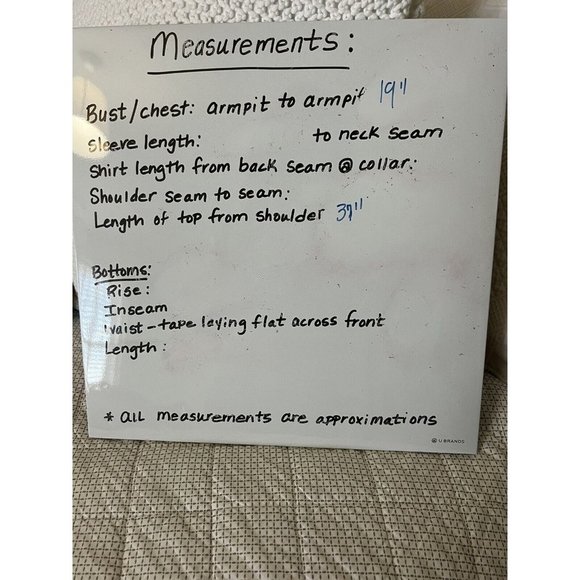 Measurements:
Bust/chest: armpit to armpit 19"
Sleeve length: to neck seam
Shirt length from back seam @ collar:
Shoulder seam to seam:
Length of top from shoulder 37"
Bottoms:
Rise:
Inseam
Waist - tape laying flat across front
Length:
* all measurements are approximations
U BRANDS